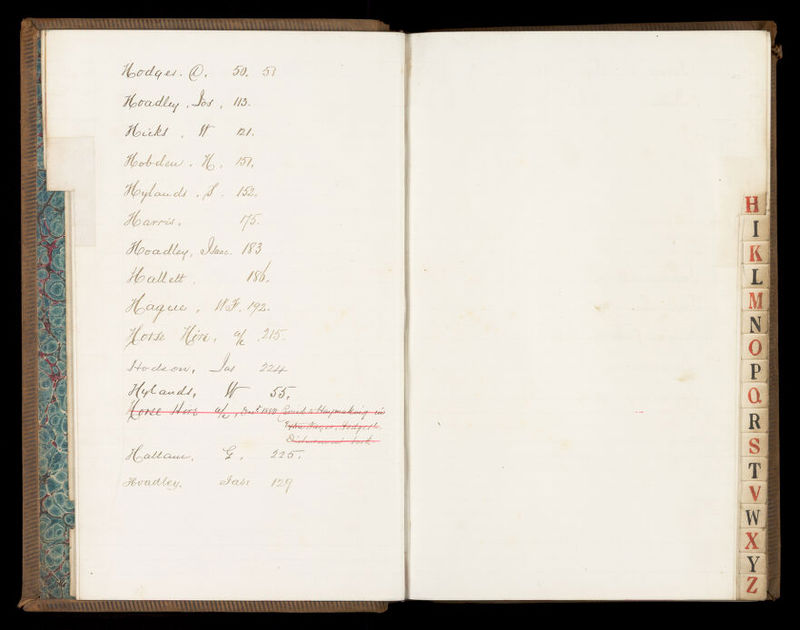 Hodges. O. 50. 53
Hoadley, Jas, 113.
Hicks, W 121.
Hobden. H, 151.
Hylands. S. 152.
Harris. 175.
Hoadley, Isaac. 183
Hallett. 186.
Hague, W.F. 192.
Horse Hire, a/c 215.
Hodson, Jas 224
Hylands, W 55.
Horse Hire a/c, 1884 Haymaking in
Hallam. G. 225.
Hoadley. Jas: 129
H
I
K
L
M
N
O
P
Q
R
S
T
V
W
X
Y
Z